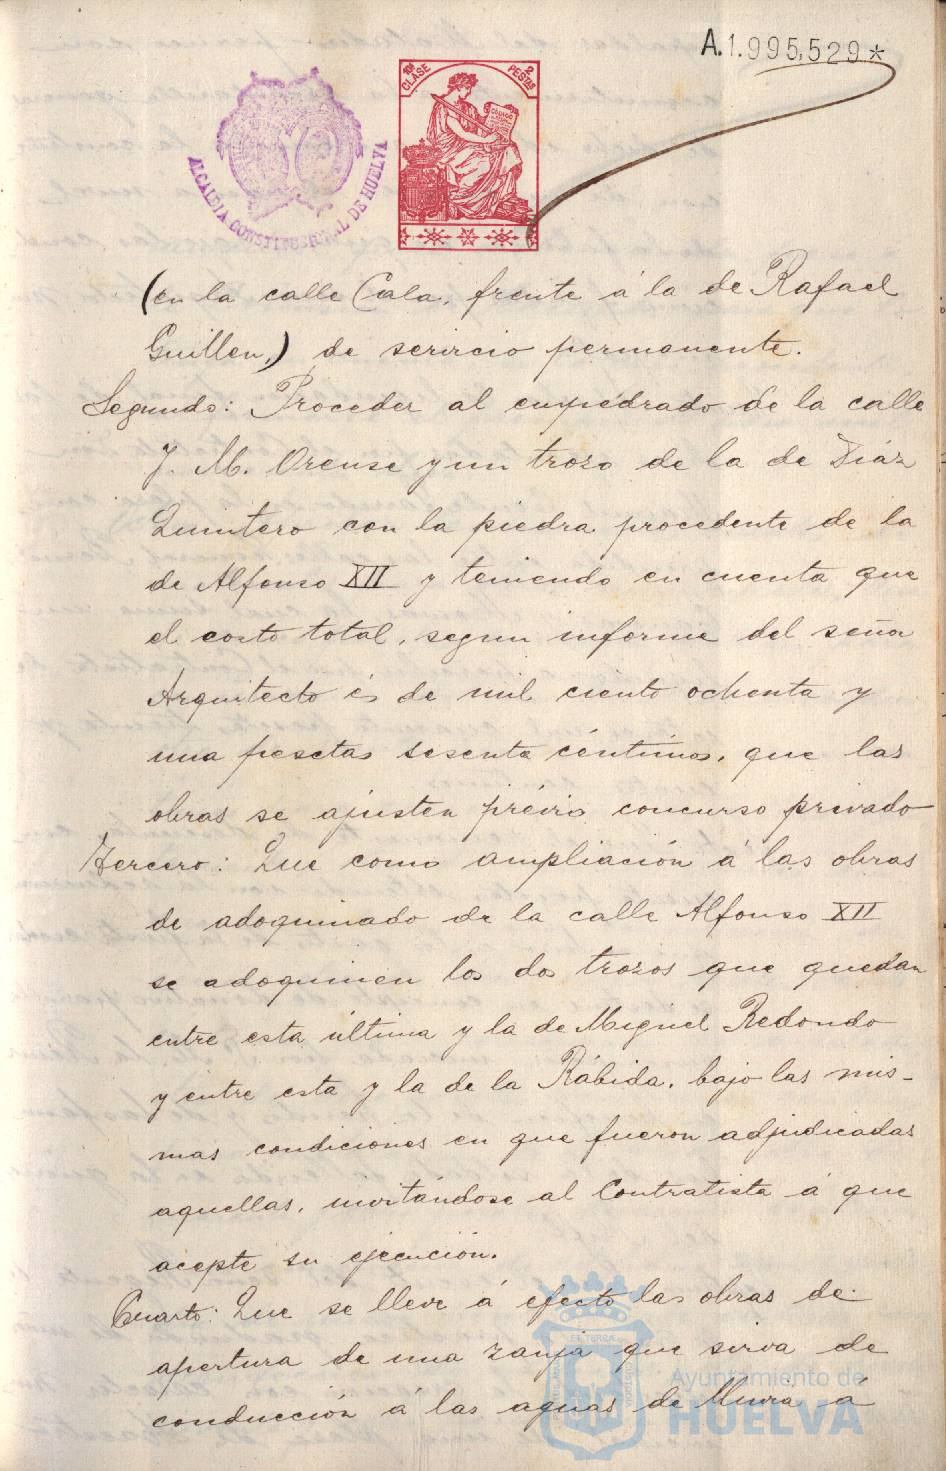 A.1.995,529*
10ª CLASE
2 PESTAS
CODIGO
ALCALDIA CONSTITUCIONAL DE HUELVA
(en la calle Cala, frente á la de Rafael
Guillen,) de servicio permanente.
Segundo: Proceder al empedrado de la calle
J. M. Orense y un trozo de la de Díaz
Quintero con la piedra procedente de la
de Alfonso XII y teniendo en cuenta que
el costo total, segun informe del señor
Arquitecto és de mil ciento ochenta y
una pesetas sesenta céntimos, que las
obras se ajusten prévio concurso privado
Tercero: Que como ampliación á las obras
de adoquinado de la calle Alfonso XII
se adoquinen los dos trozos que quedan
entre esta última y la de Miguel Redondo
y entre esta y la de la Rábida, bajo las mis-
mas condiciones en que fueron adjudicadas
aquellas, invitándose al Contratista á que
acepte su ejecución.
Cuarto: Que se lleve á efecto las obras de
apertura de una zanja que sirva de
conducción á las aguas de lluvia á
Ayuntamiento de
HUELVA